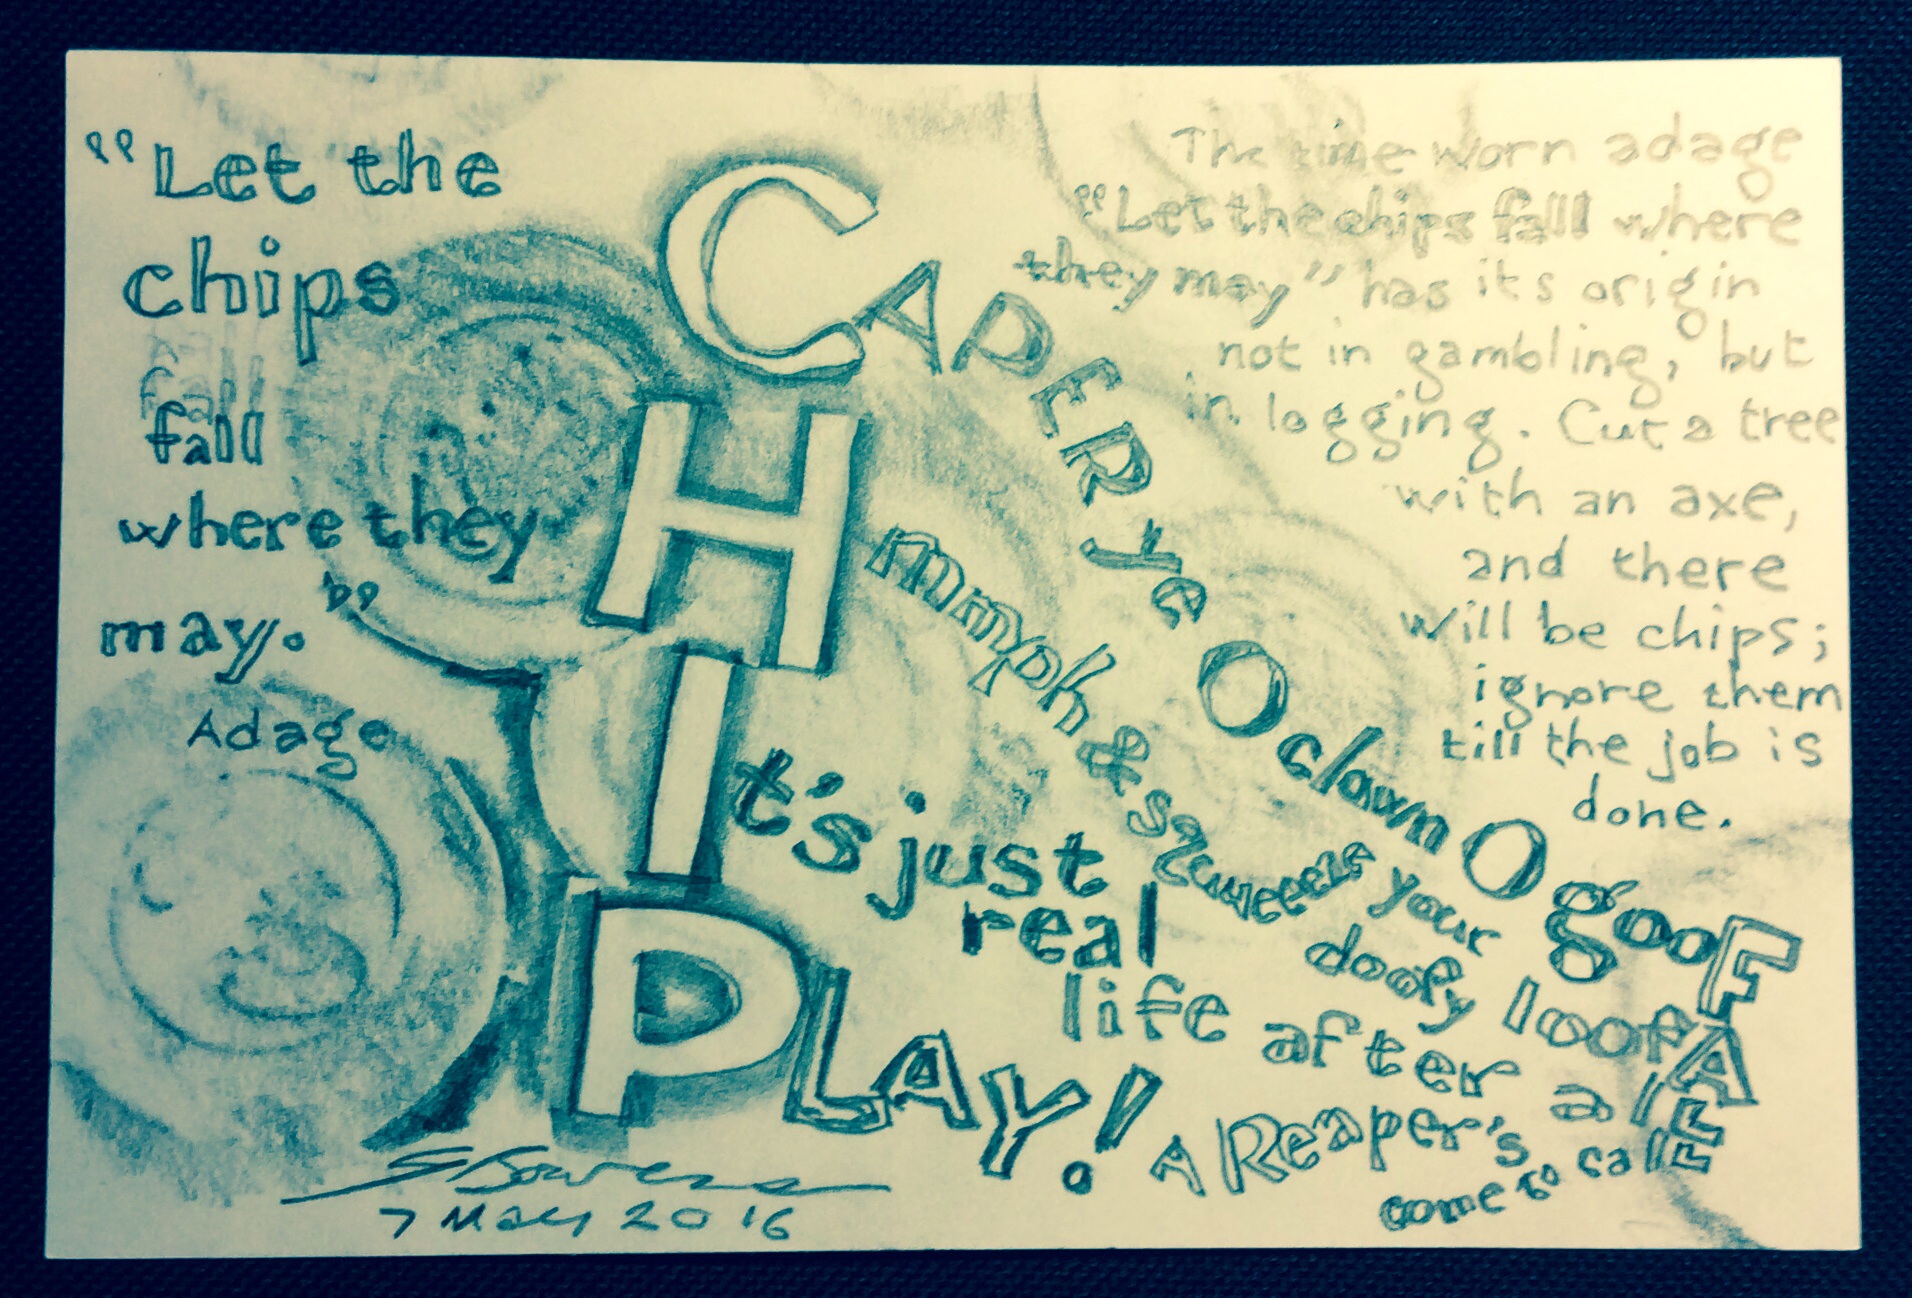 "Let the
chips
fall
fall
where they
may."
Adage
The time worn adage
"Let the chips fall where
they may" has its origin
not in gambling, but
in logging. Cut a tree
with an axe,
and there
will be chips;
ignore them
till the job is
done.
CAPER ye O clown O gooF
Hmmph & your doofy loofA
It's just
real
life after all
PLAY! A Reaper's
come to call
S Bowers
7 May 2016